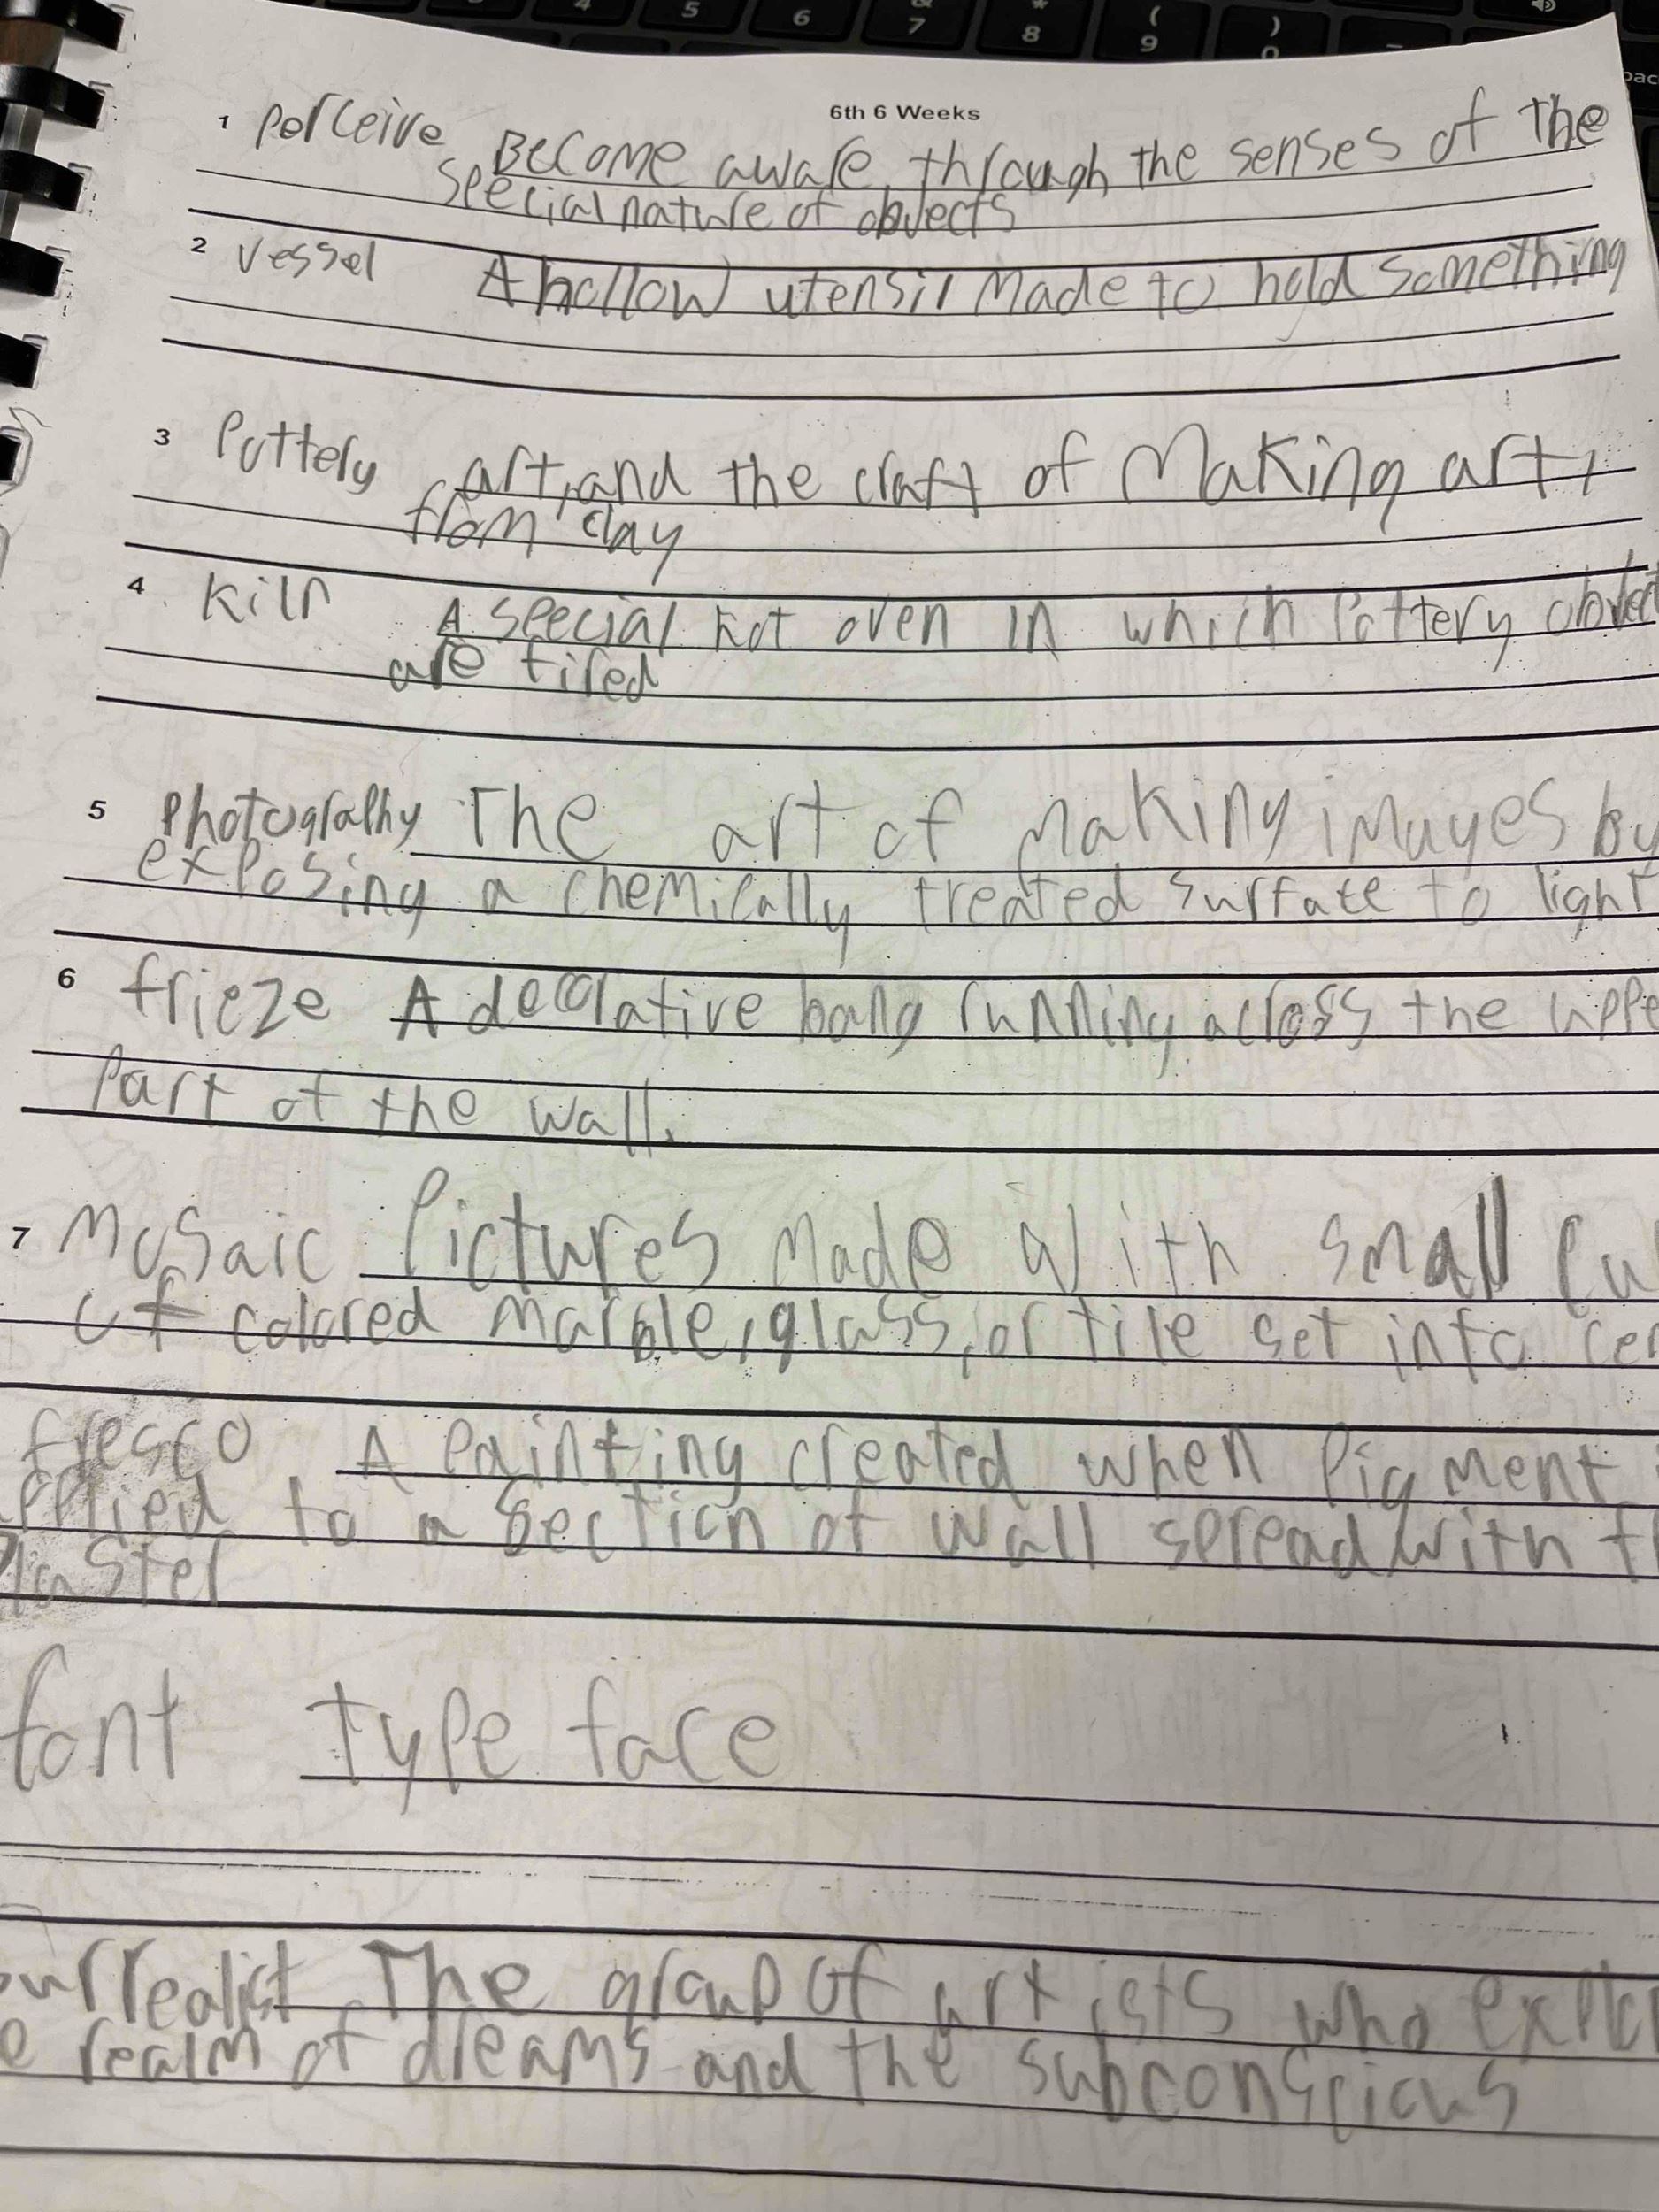 6th 6 Weeks
1 perceive Become aware, through the senses of the
special nature of objects
2 vessel A hollow utensil made to hold something
3 Pottery art, and the craft of making art,
from clay
4 kiln A special hot oven in which pottery object
are fired
5 photography The art of making images by
exposing a chemically treated surface to light
6 frieze A decorative band running across the uppe
part of the wall.
7 Mosaic Pictures made with small cu
of colored marble, glass, or tile set into cer
fresco A painting created when pigment
pplied to a section of wall spread with
plaster
font type face
surrealist The group of artists who explor
e realm of dreams and the subconscious